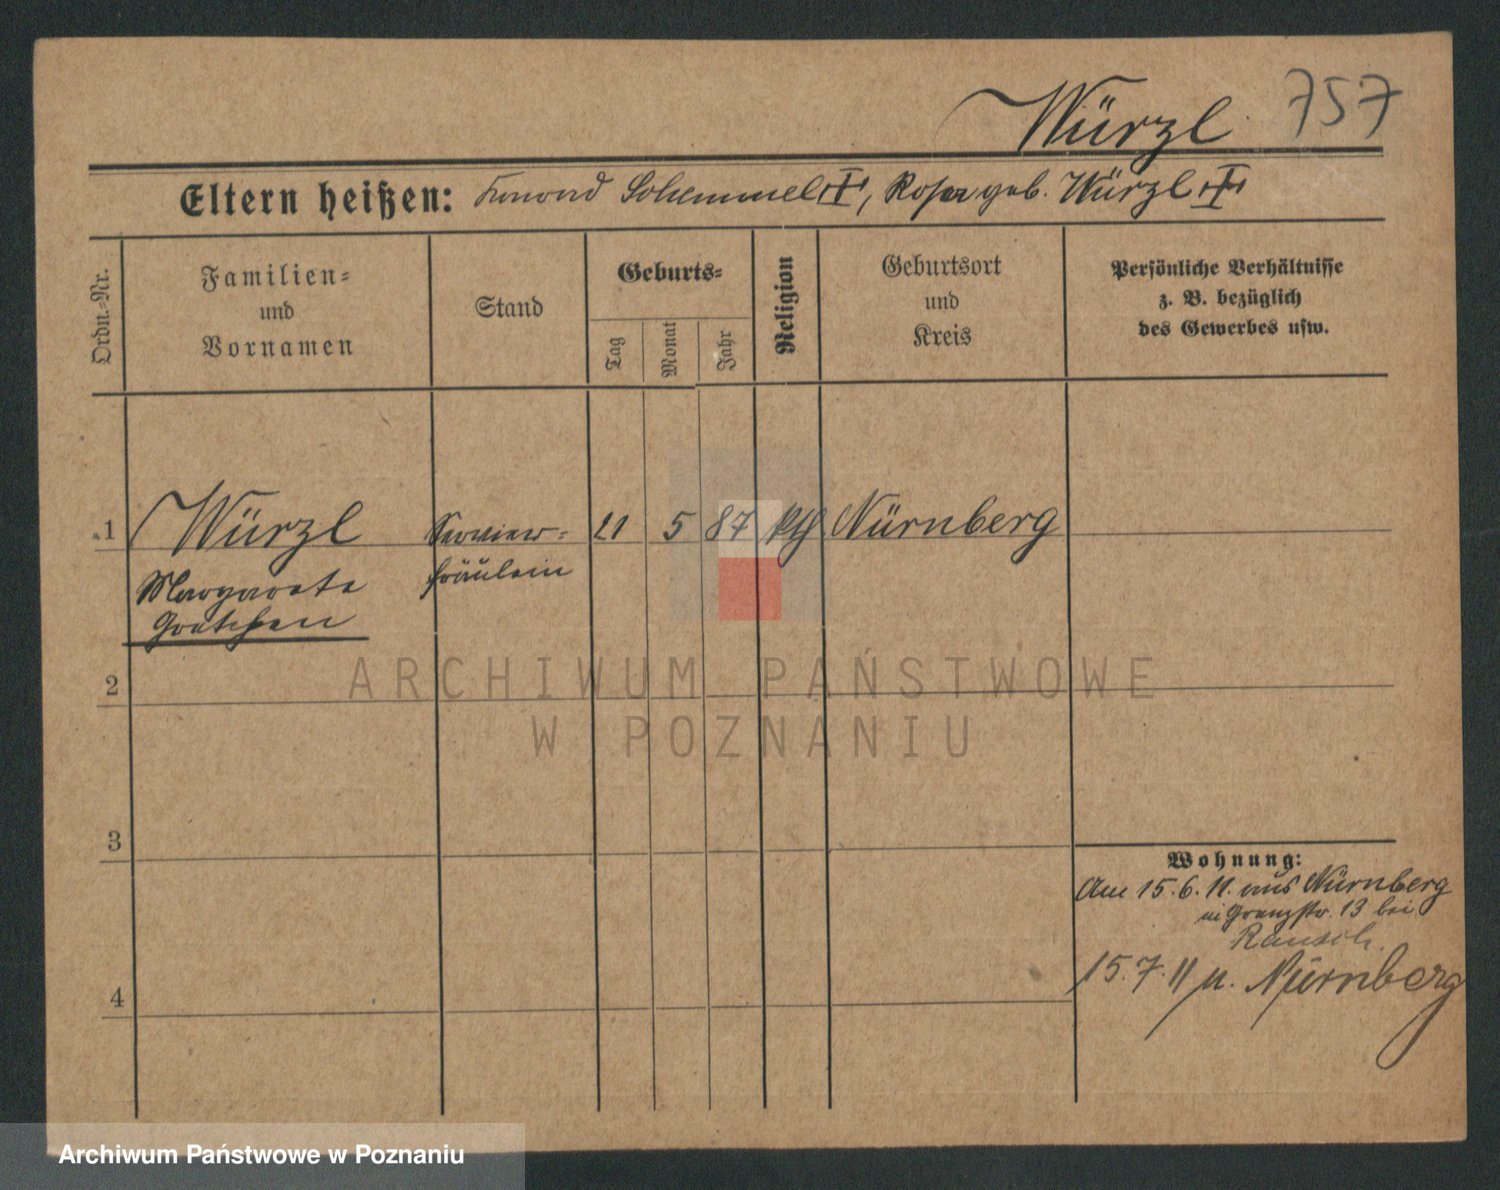 Würzl 757
Eltern heißen: Konrad Schemmel, Rosa geb. Würzl
Ordn.-Nr.
Familien-
und
Vornamen
Stand
Geburts-
Tag
Monat
Jahr
Religion
Geburtsort
und
Kreis
Persönliche Verhältnisse
z. B. bezüglich
des Gewerbes usw.
1 Würzl Servier- 21 5 87 kth Nürnberg
Margarete fräulein
Gretchen
2
ARCHIWUM PAŃSTWOWE
W POZNANIU
3
Wohnung:
Am 15.6.11. aus Nürnberg
in Grenzstr. 13 bei
Rausch.
4
15.7.11 n. Nürnberg
Archiwum Państwowe w Poznaniu